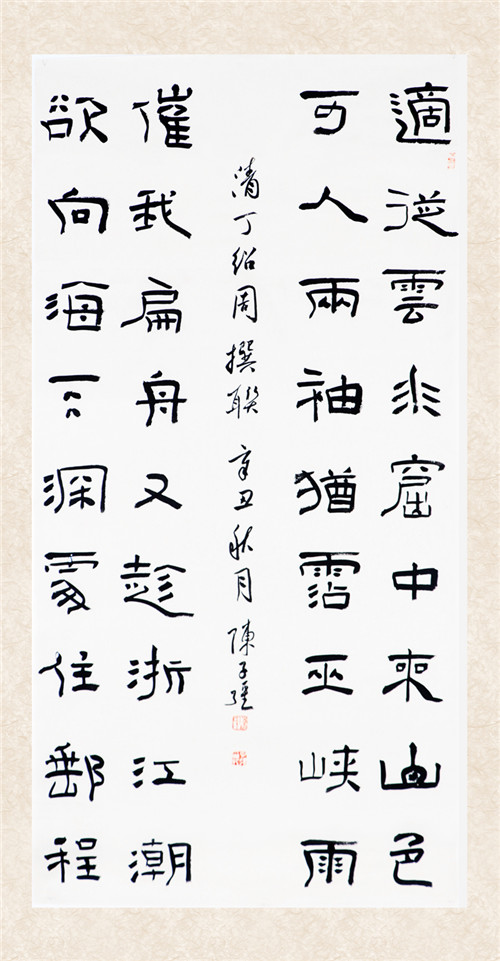 適從雲水窟中來山色
可人兩袖猶霑巫峽雨
欲向海天深處住郵程
催我扁舟又趁浙江潮
清丁紹周撰聯 辛丑秋月 陳子強